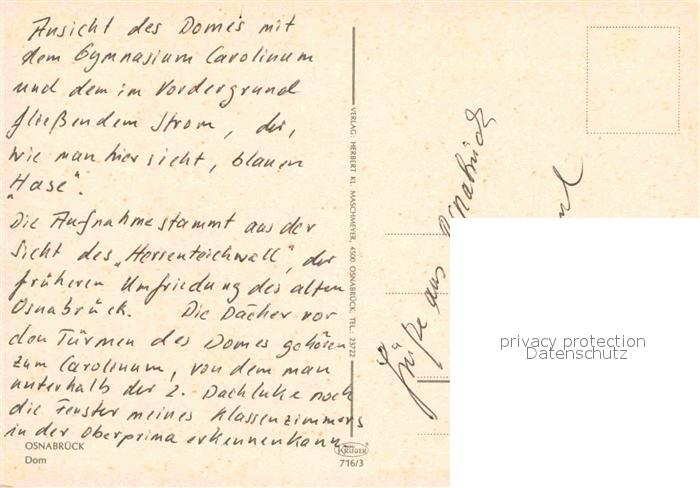 Ansicht des Domes mit
dem Gymnasium Carolinum
und dem im Vordergrund
fließendem Strom, der,
wie man hier sieht, blauen
„Hase".
Die Aufnahme stammt aus der
Sicht des „Herrenteichwall", der
früheren Umfriedung des alten
Osnabrück. Die Dächer vor
den Türmen des Domes gehören
zum Carolinum, von dem man
unterhalb der 2. Dachluke noch
die Fenster meines Klassenzimmers
in der Oberprima erkennen kann
OSNABRÜCK
Dom
VERLAG: HERBERT KL. MASCHMEYER, 4500 OSNABRÜCK, TEL.: 23722
KRÜGER
716/3
Grüße aus Osnabrück
privacy protection
Datenschutz